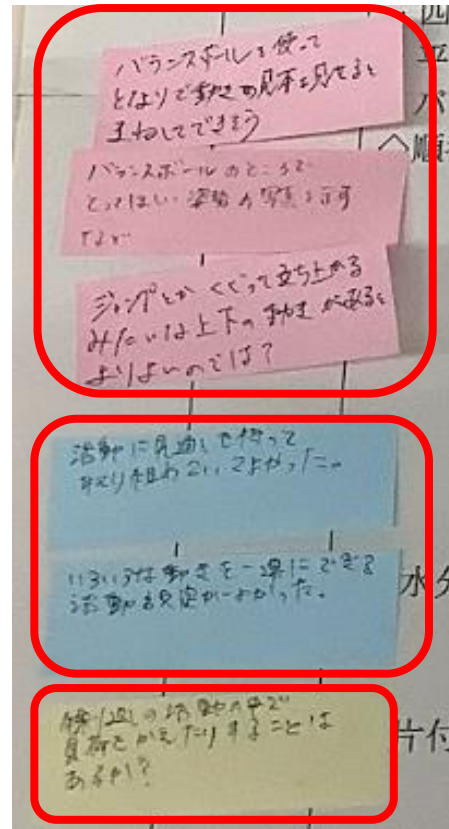 バランスボールを使って
となりで動きの見本を見せると
まねしてできそう
バランスボールのところで
とってほしい姿勢の写真を示す
などか
ジャンプとか くぐって立ち上がる
みたいな上下の動きがあると
よりよいのでは?
活動に見通しを持って
取り組めていてよかった。
いろいろな動きを一連にできる
活動設定がよかった。
繰り返しの活動の中で
負荷をかえたりすることは
あるか?
立
パ
順
水分
片付